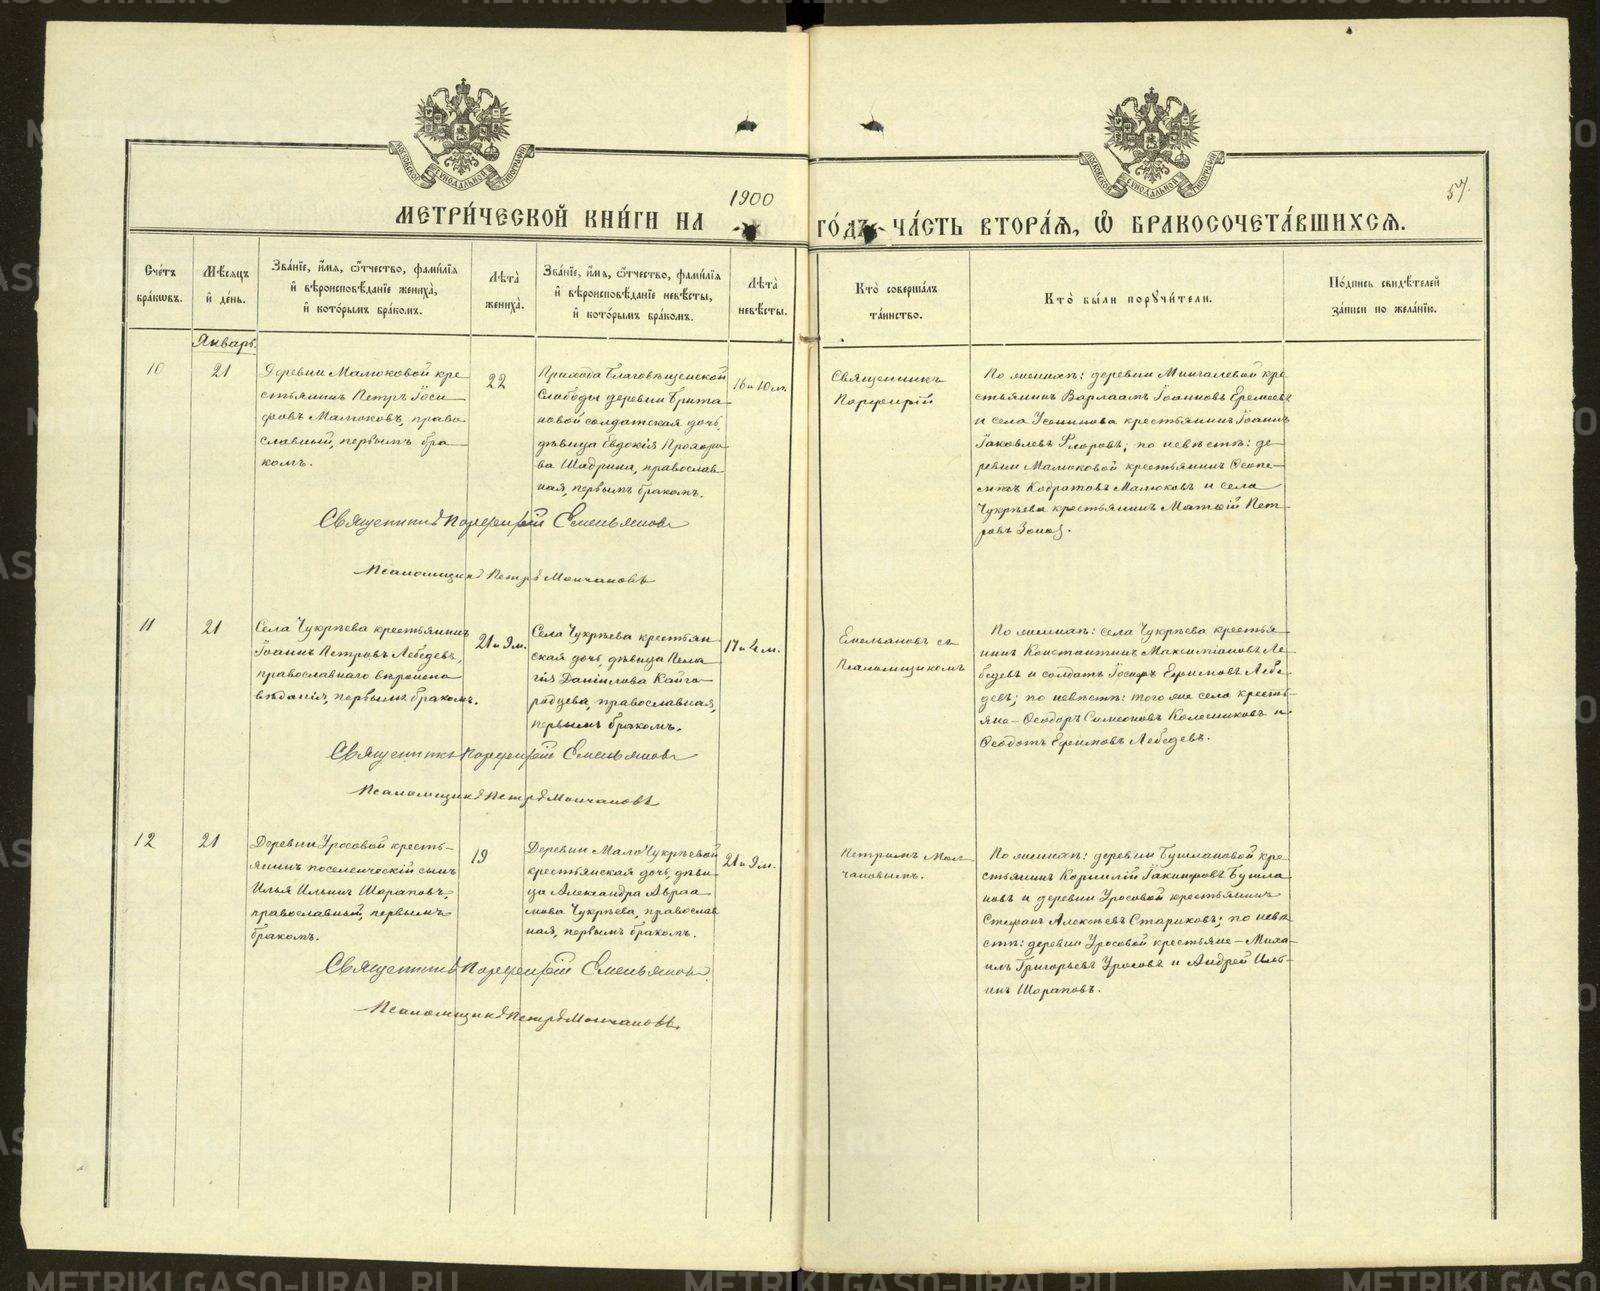 МОСКОВСКОЙ СѴНОДАЛЬНОЙ ТИПОГРАФІИ
МОСКОВСКОЙ СѴНОДАЛЬНОЙ ТИПОГРАФІИ
57.
1900
МЕТРИ́ЧЕСКОЙ КНИ́ГИ НА ГО́ДЪ ЧА́СТЬ ВТОРА́Я, Ѡ БРАКОСОЧЕТА́ВШИХСЯ.
Сче́тъ
бра́кѡвъ.
Мѣ́сяцъ
и҆ де́нь.
Зва́нїе, и҆́мя, ѻ҆́тчество, фами́лїя
и҆ вѣроисповѣ́данїе жениха̀,
и҆ кото́рымъ бра́комъ.
Лѣта̀
жениха̀.
Зва́нїе, и҆́мя, ѻ҆́тчество, фами́лїя
и҆ вѣроисповѣ́данїе невѣ́сты,
и҆ кото́рымъ бра́комъ.
Лѣта̀
невѣ́сты.
Кто̀ соверша́лъ
та́инство.
Кто̀ бы́ли поручи́тели.
По́дпись свидѣ́телей
за́писи по жела́нїю.
Январь.
10
21
Деревни Малюковой кре
стьянинъ Петръ Іоси
фовъ Малюковъ, право
славный, первымъ бра
комъ.
22
Прихода Благовѣщенской
Слободы деревни Брита
новой солдатская дочь,
дѣвица Евдокія Прохоро
ва Шадрина, православ
ная, первымъ бракомъ.
16 и 10 м.
Священникъ
Порфирій
По женихѣ: деревни Мингалевой кре
стьянинъ Варлаамъ Іоанновъ Еремеевъ
и села Усенинова крестьянинъ Іоаннъ
Іаковлевъ Флоровъ; по невѣстѣ: де
ревни Малюковой крестьянинъ Ѳеопе
Малюковъ и села
Чукрѣева крестьянинъ Матѳій Пет
ровъ
Священникъ Порфирій Емельяновъ
Псаломщикъ Петръ Молчановъ
11
21
Села Чукрѣева крестьянинъ
Іоаннъ Петровъ Лебедевъ,
православнаго вѣроиспо
вѣданія, первымъ бракомъ.
21 и 9 м.
Села Чукрѣева крестьян
ская дочь, дѣвица Пела
гія Даніилова Кайго
родцева, православная,
первымъ бракомъ.
17 и 4 м.
Емельяновъ съ
Псаломщикомъ
По женихѣ: села Чукрѣева крестья
нинъ Константинъ Максиміановъ Ле
бедевъ и солдатъ Іосифъ Ефимовъ Лебе
девъ; по невѣстѣ: того же села кресть
яне - Ѳеодоръ Симеоновъ Колесниковъ и
Ѳеодотъ Ефимовъ Лебедевъ.
Священникъ Порфирій Емельяновъ
Псаломщикъ Петръ Молчановъ
12
21
Деревни Уросовой кресть-
янинъ поселенческій сынъ
Илья Ильинъ Шараповъ,
православный, первымъ
бракомъ.
19
Деревни Мало Чукрѣевой
крестьянская дочь, дѣви
ца Александра Авраа
мова Чукрѣева, православ
ная, первымъ бракомъ.
21 и 9 м.
Петромъ Мол
чановымъ.
По женихѣ: деревни Бушлановой кре
стьянинъ Корнилій Іакинфовъ Бушла
новъ и деревни Уросовой крестьянинъ
Стефанъ Алексѣевъ Стариковъ; по невѣ
стѣ: деревни Уросовой крестьяне - Миха
илъ Григорьевъ Уросовъ и Андрей Иль
инъ Шараповъ.
Священникъ Порфирій Емельяновъ
Псаломщикъ Петръ Молчановъ
METRIKI.GASO-URAL.RU